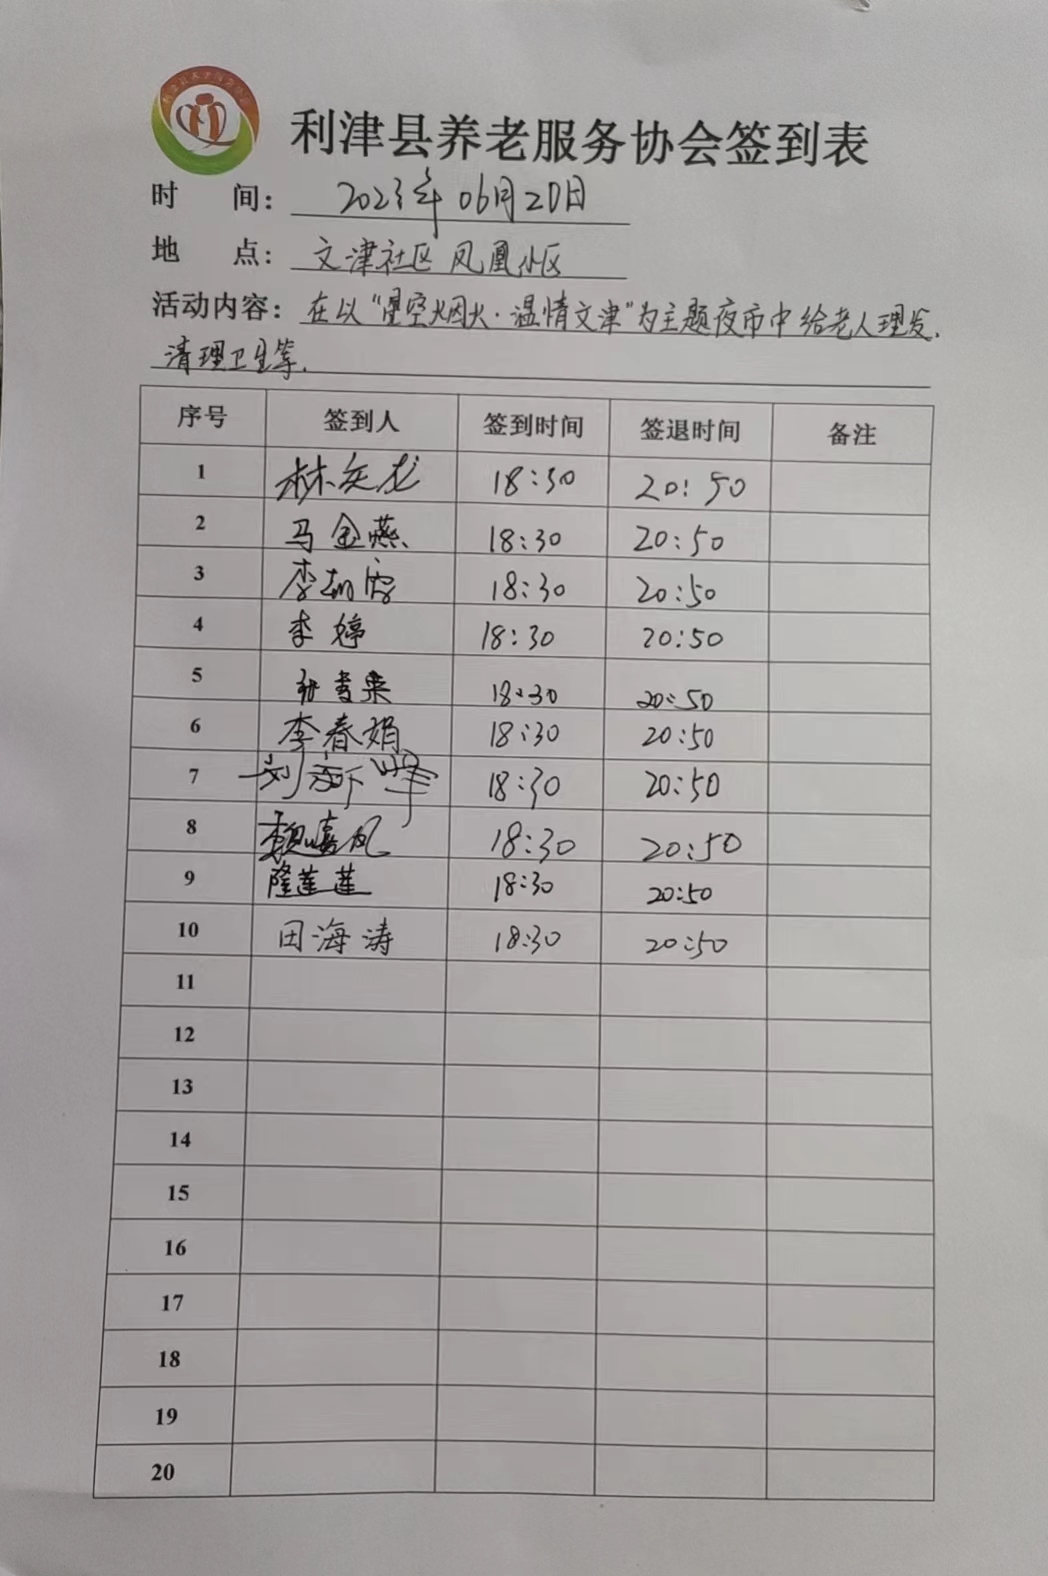 利津县养老服务协会签到表
时 间: 2023年06月20日
地 点: 文津社区 凤凰小区
活动内容: 在以“星空烟火·温情文津”为主题夜市中给老人理发、
清理卫生等.
序号 签到人 签到时间 签退时间 备注
1 18:30 20:50
2 马金燕 18:30 20:50
3 李 18:30 20:50
4 李婷 18:30 20:50
5 18:30 20:50
6 李春娟 18:30 20:50
7 刘新 18:30 20:50
8 魏 凤 18:30 20:50
9 隆莲莲 18:30 20:50
10 田海涛 18:30 20:50
11
12
13
14
15
16
17
18
19
20